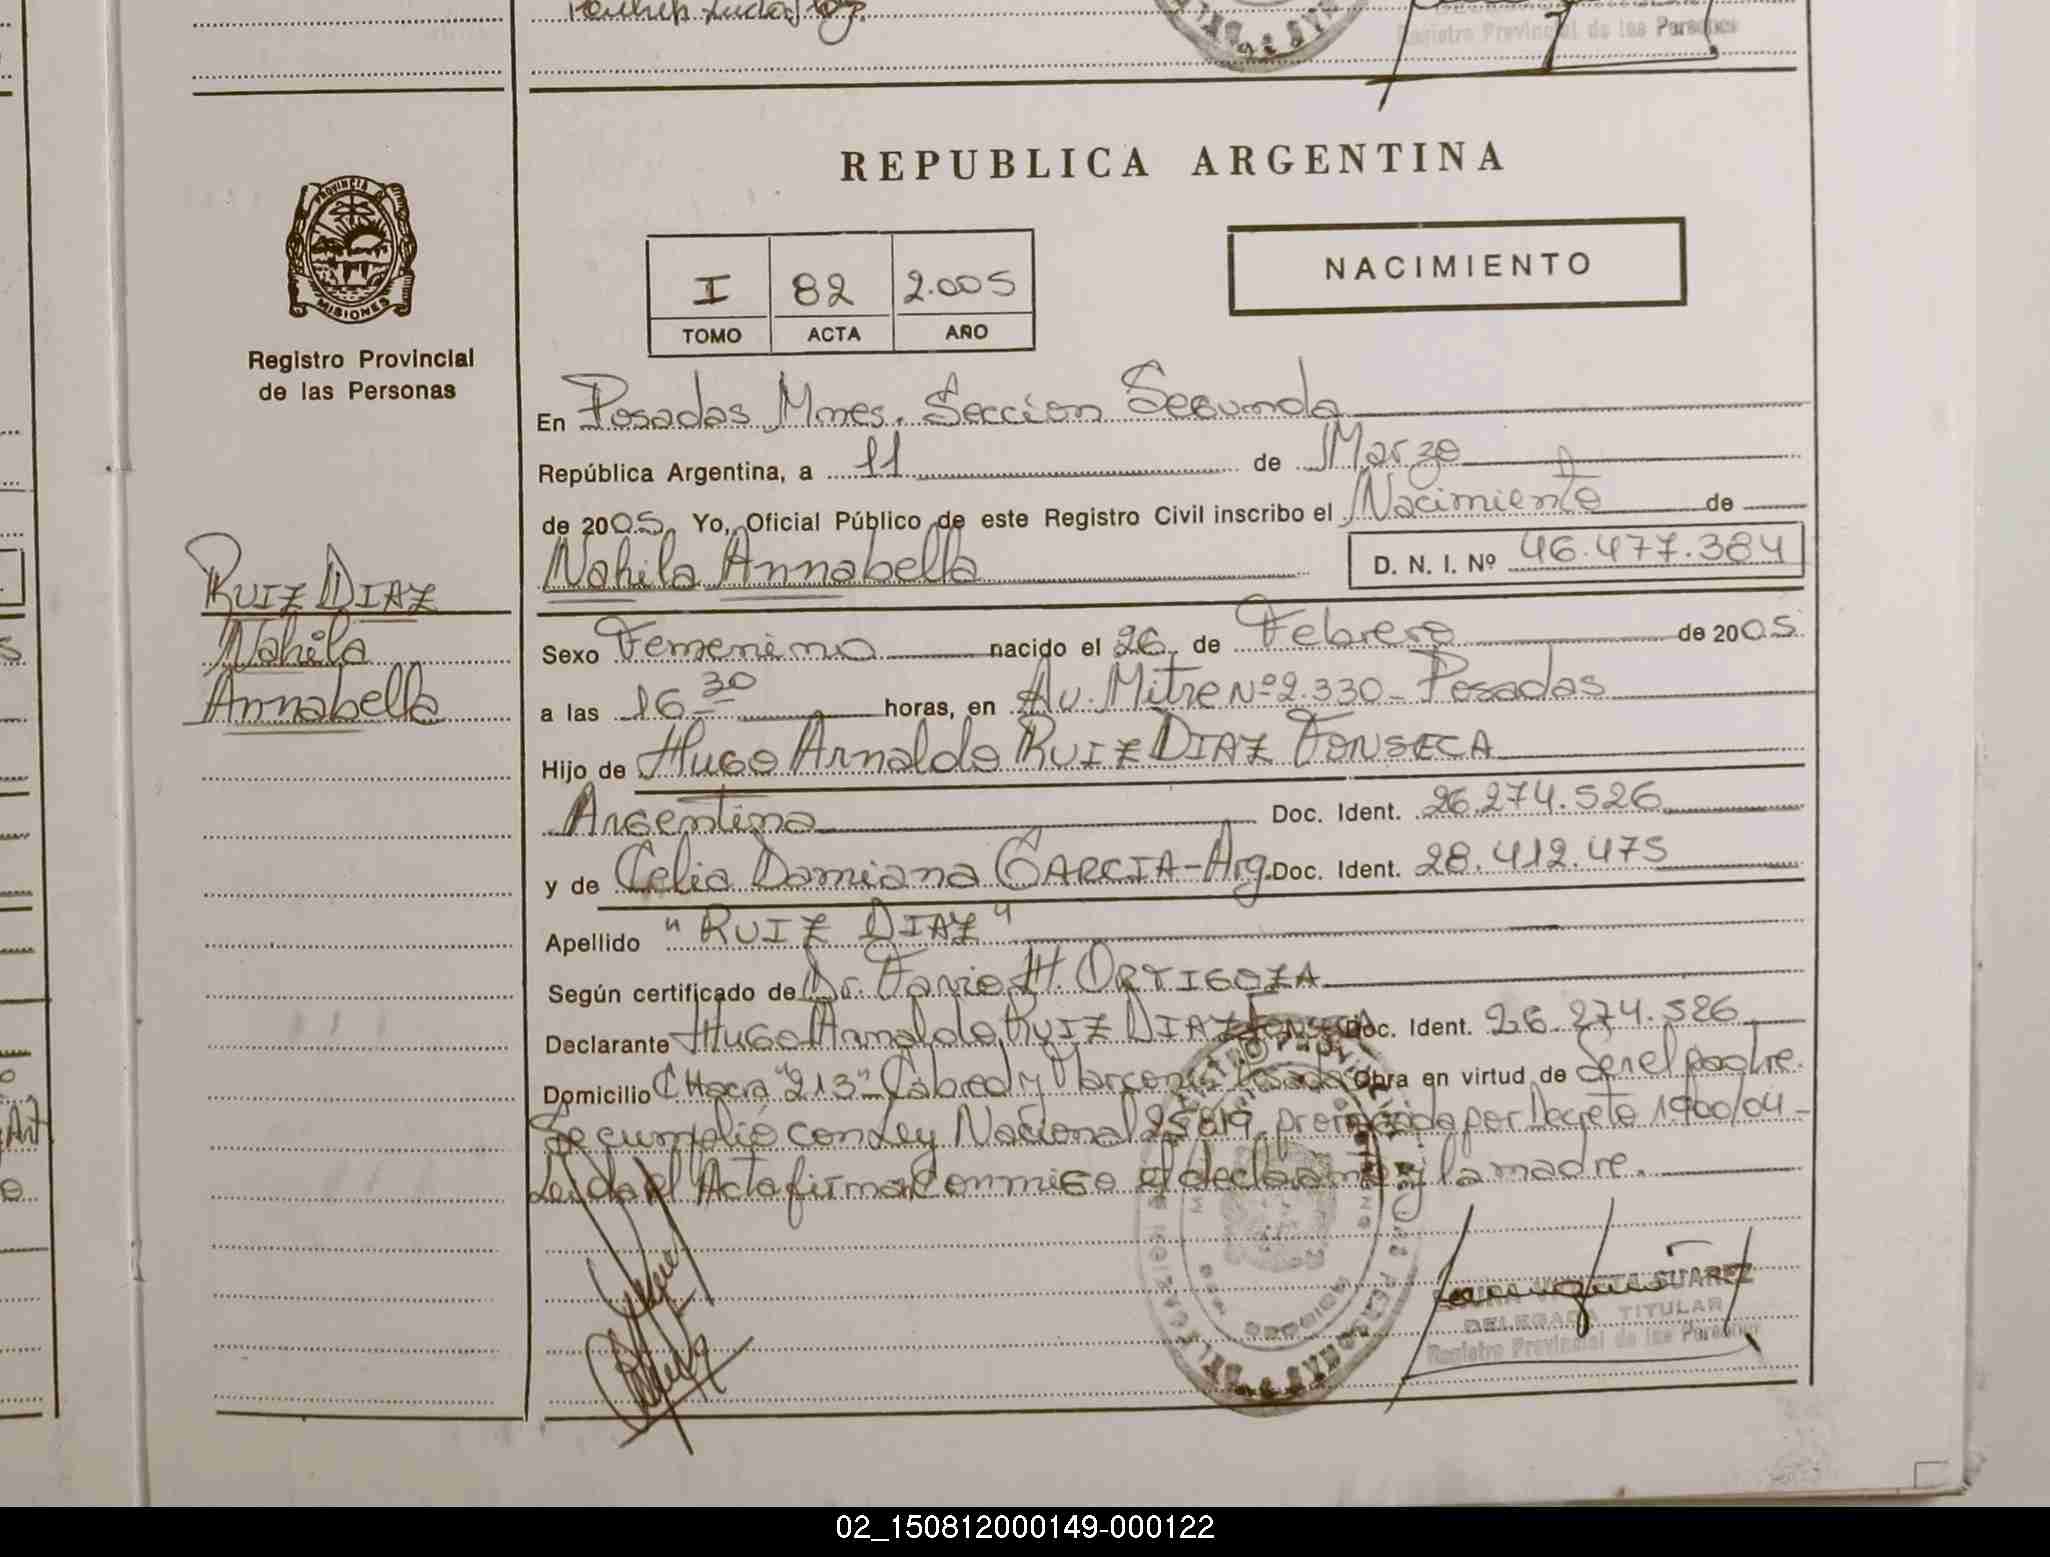 Registro Provincial de las Personas
REPUBLICA ARGENTINA
PROVINCIA DE
MISIONES
I 82 2.005
TOMO ACTA AÑO
NACIMIENTO
Registro Provincial
de las Personas
En Posadas Mnes. Seccion Segunda
República Argentina, a 11 de Marzo
de 2005. Yo, Oficial Público de este Registro Civil inscribo el Nacimiento de
Nahila Annabella D. N. I. Nº 46.477.384
RUIZ DIAZ
Nahila
Annabella
Sexo Femenino nacido el 26 de Febrero de 2005
a las 16 30 horas, en Av. Mitre Nº 2.330 - Posadas
Hijo de Hugo Arnaldo RUIZ DIAZ FONSECA
Argentina Doc. Ident. 26.274.526
y de Celia Damiana GARCIA - Arg. Doc. Ident. 28.412.475
Apellido "RUIZ DIAZ"
Según certificado de Dr. H. ORTIGOZA
Declarante Hugo Arnaldo RUIZ DIAZ FONSECA Doc. Ident. 26.274.526
Domicilio CHacra "213" Cabred y Marconi Posadas Obra en virtud de Ser el padre.
Se cumplió con Ley Nacional 25819 por Decreto 1900/04 -
Leida el Acta firman conmigo el declarante y la madre.
SUAREZ
DELEGADA TITULAR
Registro Provincial de las Personas
02_150812000149-000122